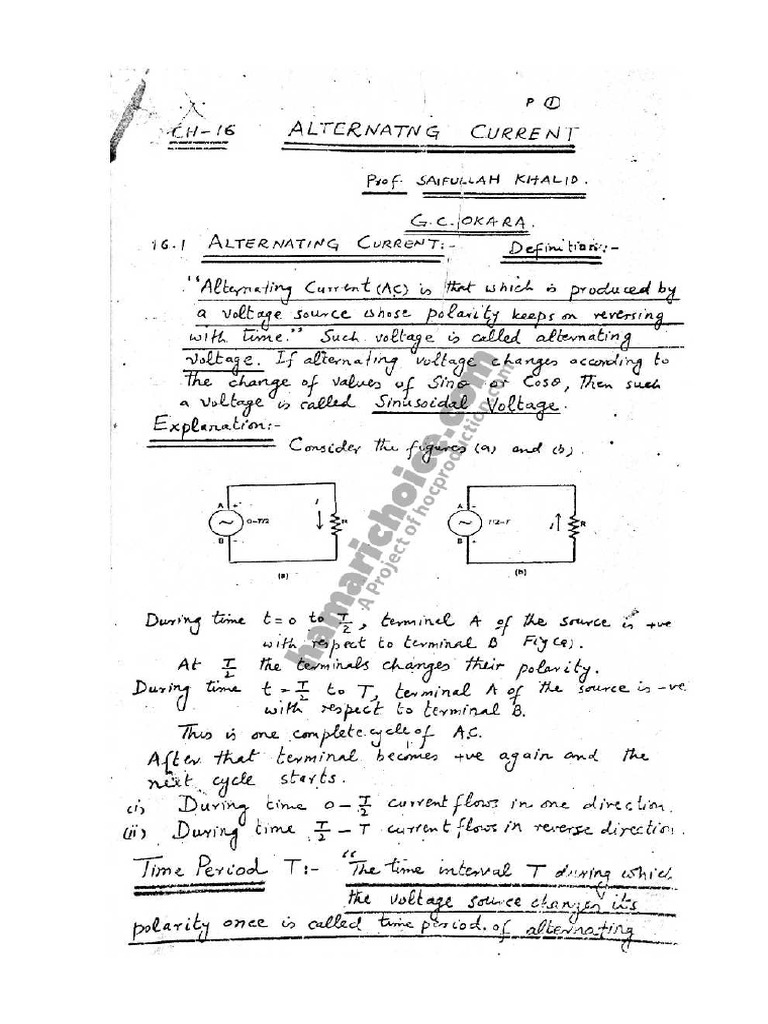 P ①
CH-16 ALTERNATNG CURRENT
Prof. SAIFULLAH KHALID.
G.C. OKARA.
16.1 ALTERNATING CURRENT:- Definition:-
"Alternating Current (AC) is that which is produced by
a voltage source whose polarity keeps on reversing
with time." Such voltage is called alternating
voltage. If alternating voltage changes according to
the change of values of Sinθ or Cosθ, then such
a voltage is called Sinusoidal Voltage.
Explanation:-
Consider the figures (a) and (b).
A + I
~ 0-T/2 R
B -
(a)
A -
~ T/2-T I R
B +
(b)
During time t=0 to T/2, terminal A of the source is +ve
with respect to terminal B Fig(a).
At T/2 the terminals changes their polarity.
During time t=T/2 to T, terminal A of the source is -ve
with respect to terminal B.
This is one complete cycle of A.C.
After that terminal becomes +ve again and the
next cycle starts.
(i) During time 0-T/2 current flows in one direction.
(ii) During time T/2-T current flows in reverse direction.
Time Period T:- "The time interval T during which
the voltage source changes its
polarity once is called time period. of alternating
hamarichoice.com
A Project of hocproduction.com